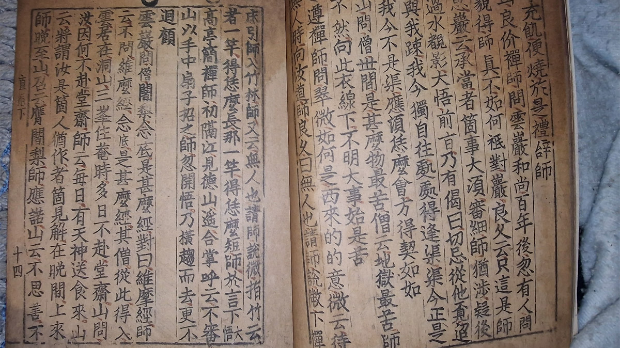 充飢便燒於是禮辭師
山良价禪師問雲巖和尚百年後忽有人問
貌得師真不如何祗對巖良久云只這是師
巖云承當者箇事大須審細師猶涉疑後
過水覩影大悟前旨乃有偈曰切忌從他覓迢
與我踈我今獨自往處處得逢渠渠今正是
我今不是渠應須恁麽會方得契如如
山問僧世間是甚麽物最苦僧云地獄最苦師
不然向此衣線下不明大事始是苦
遵禪師問翠微如何是西來的的意微云待
無人時向汝道師良久曰無人也請師說微下禪
床引師入竹林師又云無人也請師說微指竹云
者一竿得恁麽長那一竿得恁麽短師於言下大悟
高亭簡禪師初隔江見德山遙合掌呼云不審
山以手中扇子招之師忽開悟乃橫趨而去更不
迴顧
雲巖問僧聞念底是甚麽經對曰維摩經師
云不問維摩經念底是甚麽經其僧從此得入
雲居在洞山三峯住菴時多日不赴堂齋山問
汝因何不赴堂齋師云每日有天神送食來山
云將謂汝是箇人猶作者箇見解在晩間上來
師晩至山召云膺闍梨師應諾山云不思善不
十四